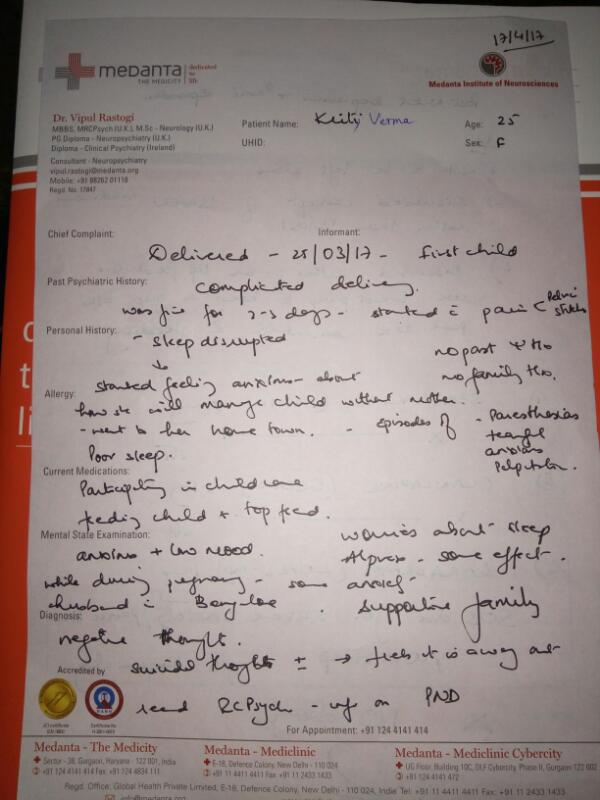 17/4/17
medanta
THE MEDICITY
dedicated to life
Medanta Institute of Neurosciences
Dr. Vipul Rastogi
MBBS, MRCPsych (U.K.), M.Sc - Neurology (U.K.)
PG Diploma - Neuropsychiatry (U.K.)
Diploma - Clinical Psychiatry (Ireland)
Consultant - Neuropsychiatry
vipul.rastogi@medanta.org
Mobile: +91 88262 01118
Regd. No. 17847
Patient Name: Verma Age: 25
UHID: Sex: F
Chief Complaint: Informant:
Delivered - 25/03/17 - first child
Past Psychiatric History:
complicated delivery.
was fine for 2-3 days - started c pain < Pelvic stitches
Personal History:
- sleep disrupted
no past Ψ H/o
no family H/o.
Allergy:
started feeling anxious - about
how she will manage child without mother.
- went to her home town. - episodes of - Paresthesias
tearful
anxious
Palpitation.
Poor sleep.
Current Medications:
Participating in child care
feeding child + top feed.
Mental State Examination:
worries about sleep
anxious + low mood.
Alprax - some effect.
while during pregnancy - some anxiety
husband in Banglore. supportive family
Diagnosis:
negative thought.
suicidal thoughts ± → feels it is away out
Accredited by
read RCPsych - info on PND
For Appointment: +91 124 4141 414
Medanta - The Medicity
Sector - 38, Gurgaon, Haryana - 122 001, India
+91 124 4141 414 Fax +91 124 4834 111
Medanta - Mediclinic
E-18, Defence Colony, New Delhi - 110 024
+91 11 4411 4411 Fax +91 11 2433 1433
Medanta - Mediclinic Cybercity
UG Floor, Building 10C, DLF Cybercity, Phase II, Gurgaon 122 002
+91 124 4141 472
Regd. Office: Global Health Private Limited, E-18, Defence Colony, New Delhi - 110 024, India Tel: +91 11 4411 4411 Fax: +91 11 2433 1433
info@medanta.org